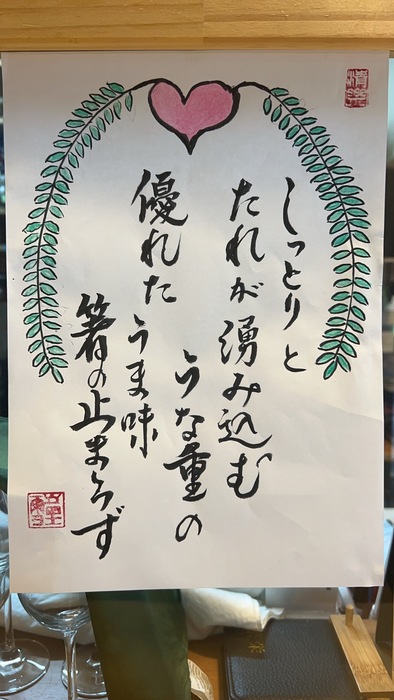 しっとりと
たれが湧み込む
うな重の
優れたうま味
箸の止まらず